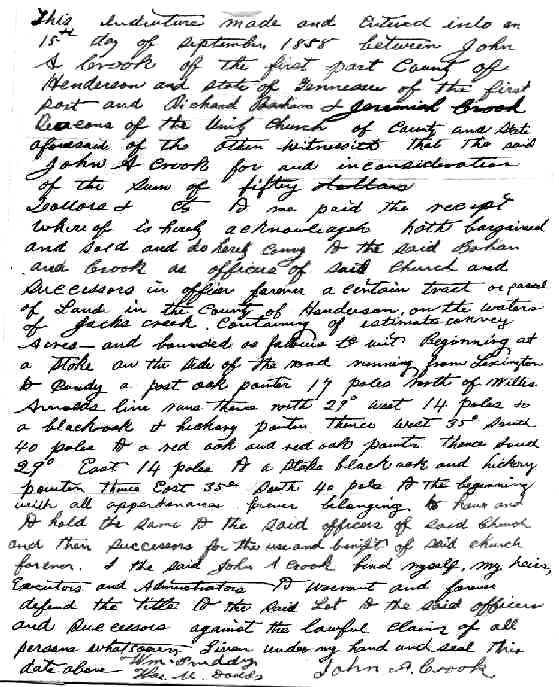 This indenture made and Entered into on
15th day of September 1858 between John
A Crook of the first part County of
Henderson and State of Tennessee of the first
part and Richard Barham & Jeremiah Crook
Deacons of the Unity Church of County and State
aforesaid of the other Witnesseth that The said
John A Crook for and in consideration
of the Sum of fifty dollars
Dollars & cts to me paid the receipt
whereof is hereby acknowledged hath bargained
and sold and do hereby convey to the said Barham
and Crook as officers of said Church and
Successors in office forever a certain tract or parcel
of Land in the County of Henderson, on the waters
of Jacks creek. Containing of estimate
Acres - and bounded as follows to wit Beginning at
a Stake on the side of the road running from Lexington
to Purdy a post oak pointer 17 poles north of Willis
Arnolds line runs thence north 29° West 14 poles to
a blackoak & hickory pointer thence West 35° South
40 poles to a red oak and red oak pointer thence South
29° East 14 poles to a Stake black oak and hickory
pointer thence East 35° South 40 pole to the beginning
with all appertenances forever belonging to have and
to hold the same to the said officers of said Church
and their successors for the use and benifit of said church
forever. I the said John A Crook bind myself, my heirs,
Executors and Administrators to Warrant and forever
defend the title to the said Lot to the said officers
and Successors against the lawful claims of all
persons whatsoever Given under my hand and seal this
date above - Wm. John A. Crook
Dodds